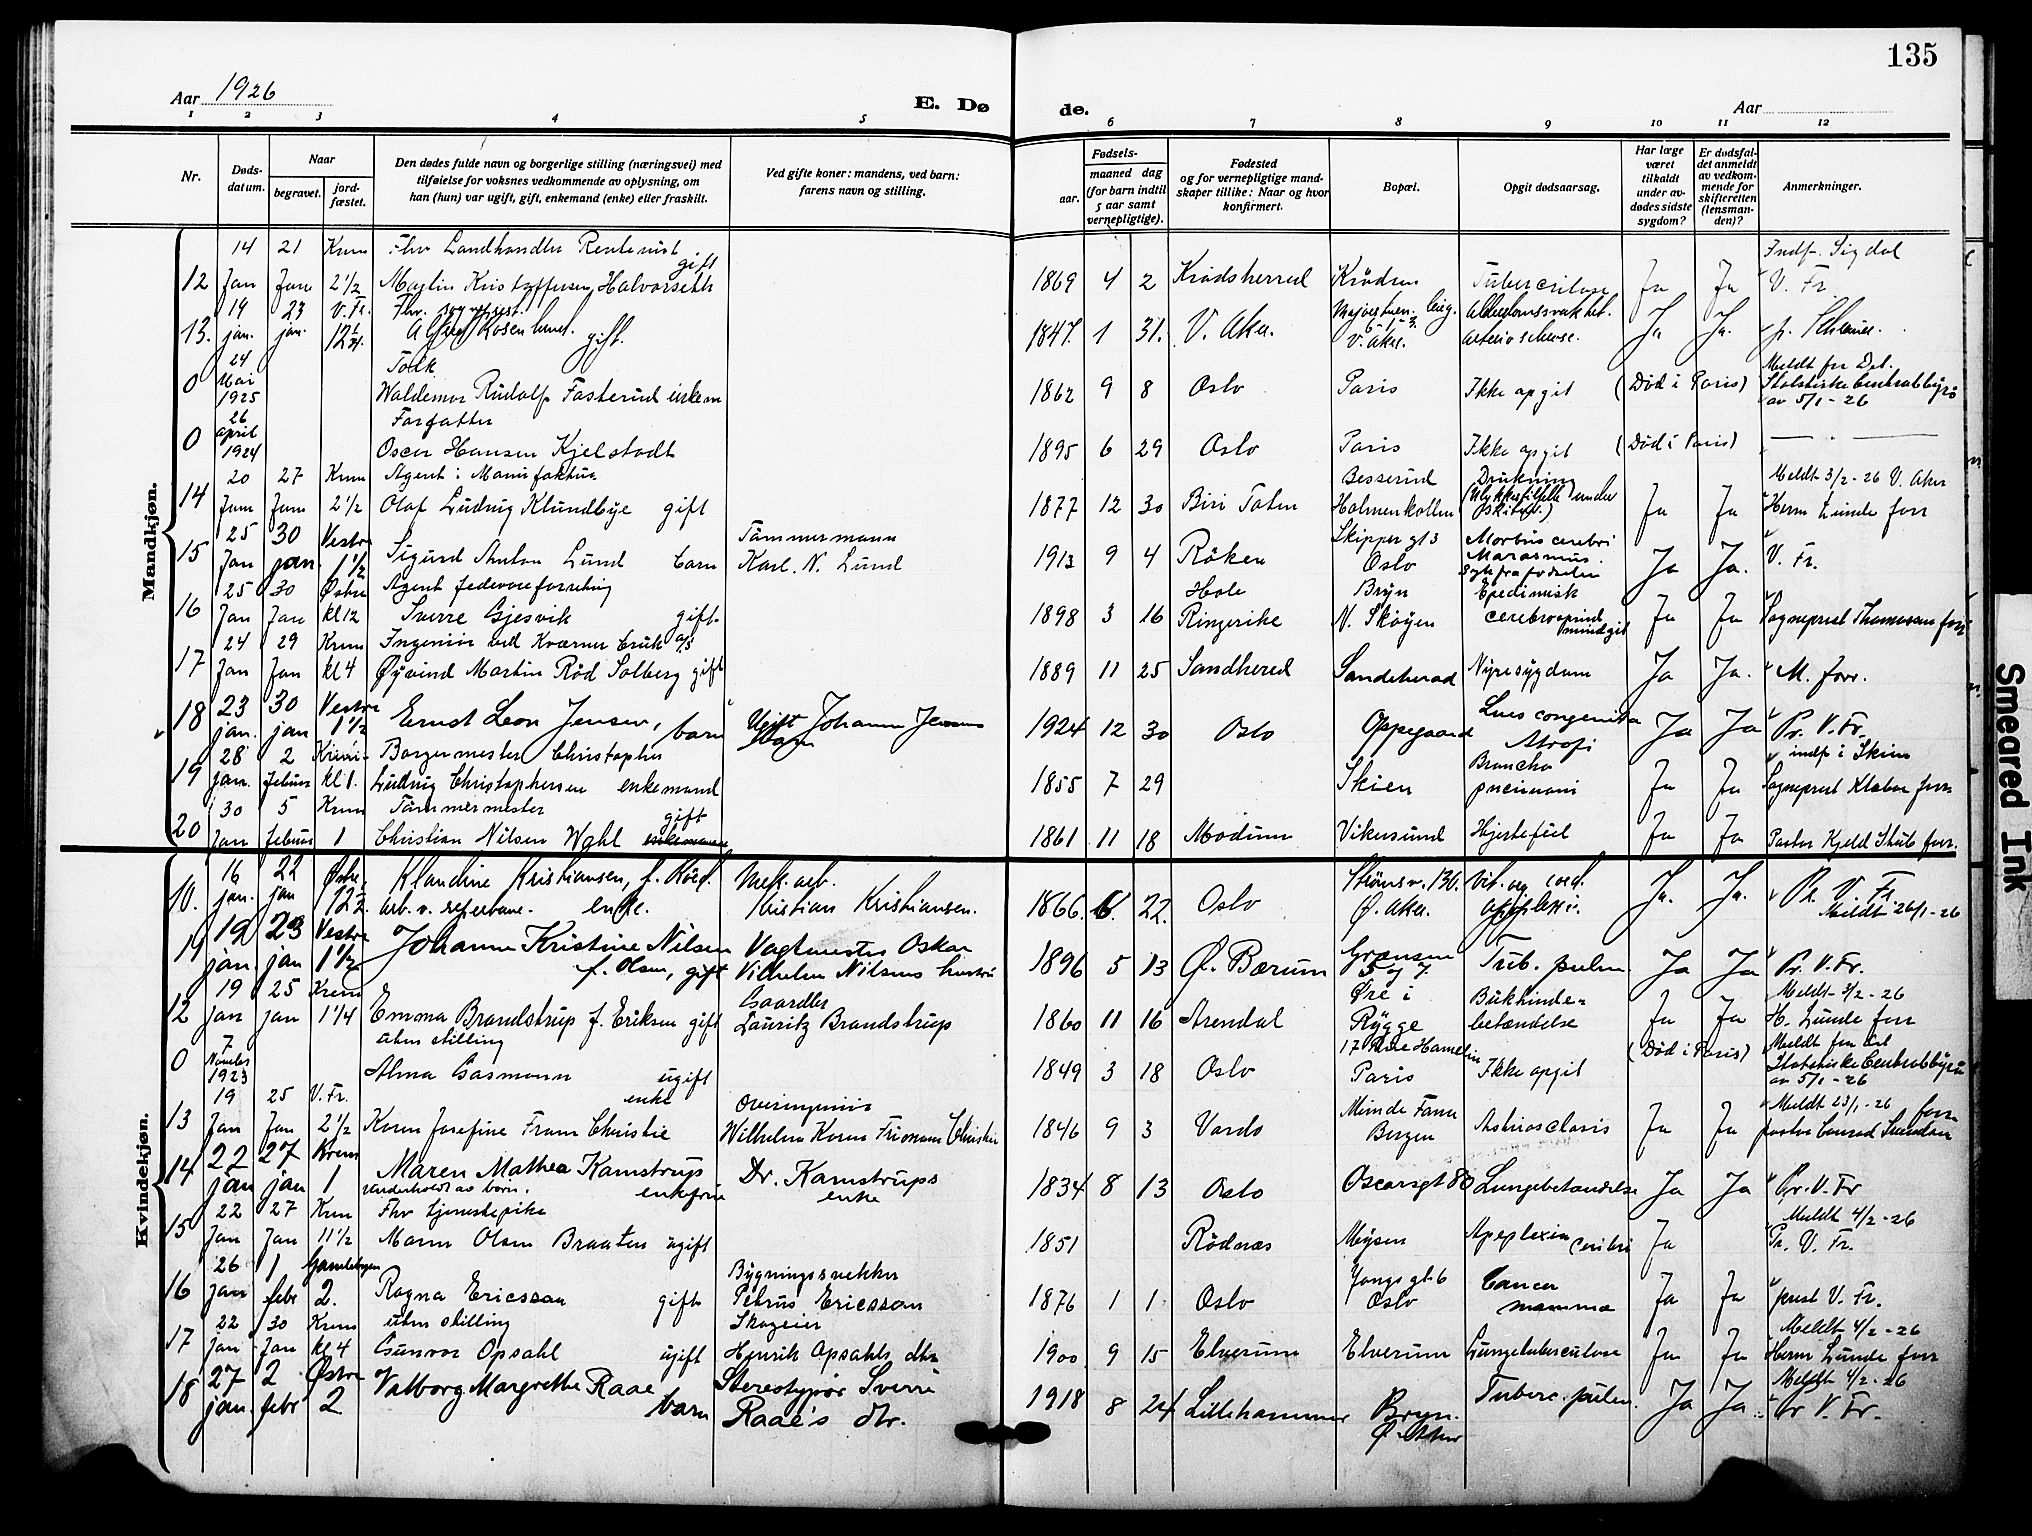 135
Aar 1926
E. Dø de.
Aar
1 2 3 4 5 6 7 8 9 10 11 12
Nr.
Døds-
datum.
Naar
begravet.
jord-
fæstet.
Den dødes fulde navn og borgerlige stilling (næringsvei) med
tilføielse for voksnes vedkommende av oplysning, om
han (hun) var ugift, gift, enkemand (enke) eller fraskilt.
Ved gifte koner: mandens, ved barn:
farens navn og stilling.
Fødsels-
aar.
maaned dag
(for barn indtil
5 aar samt
vernepligtige).
Fødested
og for vernepligtige mand-
skaper tillike: Naar og hvor
konfirmert.
Bopæl.
Opgit dødsaarsag.
Har læge
været
tilkaldt
under av-
dødes sidste
sygdom?
Er dødsfal-
det anmeldt
av vedkom-
mende for
skifteretten
(lensman-
den)?
Anmerkninger.
Mandkjøn.
14 21 Krem Fhv Landhandler Rentenist gift Indf. Sigdal
12 Jan Jan 2 1/2 Kristoffersen Halvorseth 1869 4 2 Krødsherred Krødsen Ja Ja V. Fr.
19 23 V. Fr. Fhv.
13. jan. jan. gift. 1847. 1 31. V. Aker. V. Aker. Ja Ja.
24 Tolk Meldt fra Det
0 Mai Waldemar Rudolf Fasterud enkem 1862 9 8 Oslo Paris Ikke opgit (Død i Paris) Statistiske Centralbyrå
1925 av 5/1-26
26 Forfatter
0 april Oscar Hansen Kjelstadt 1895 6 29 Oslo Paris Ikke opgit (Død i Paris)
1924
20 27 Krem Agent i Manufaktur Besserud Drukning Meldt 3/2-26 V. Aker
14 Jan Jan 2 1/2 Olaf Ludvig Klundbye gift 1877 12 30 Biri Toten Holmenkollen Ja Ja Herm Lunde forr
25 30 Vestre Tømmermann Skipper gt 3 Morbus cerebri
15 Jan jan 1 1/2 Sigurd Anton Lund barn Karl. N. Lund 1913 9 4 Røken Oslo Marasmus Ja Ja. V. Fr.
25 30 Østre Agent Hole Bryn Epedimisk
16 Jan Jan kl 12 Sverre Gjesvik gift 1898 3 16 Ringerike N. Skøyen Ja Ja Sogneprest Thomassen forr
24 29 Krem Ingeniør ved Kværner bruk a/s
17 Jan Jan kl 4 Øyvind Martin Rød Solberg gift 1889 11 25 Sandherred Sandeherad Nyresygdom Ja Ja. M. forr.
18 23 30 Vestre Lues congenita
jan. jan 1 1/2 Ernst Leon Jensen, barn Ugift Johanne Jensens barn 1924 12 30 Oslo Oppegaard Atrofi Ja Ja Pr. V. Fr.
28 2 Borgermester Christopher Broncho indf i Skien
19 jan. februar kl 1. Ludvig Christophersen enkemand 1855 7 29 Skien pneumoni Ja Ja Sogneprest forr
30 5 Krem Tømmermester gift
20 Jan februar 1 Christian Nilsen Wahl 1861 11 18 Modum Vikersund Hjertefeil Ja Ja Pastor Kjeld Stub forr.
Kvindekjøn.
16 22 Østre Klaudine Kristiansen, f. Mek. arb. Strømsv. 130. Vit. org. cord.
10. jan. jan enke. Kristian Kristiansen. 1866. 6. 22. Oslo Ø. Aker. apoplexi. Ja. Ja. Pr. V. Fr.
Meldt 26/1-26
11 19 23 Vestre Johanne Kristine Nilsen Vagtmester Oskar Grensen
jan. jan 1 1/2 f. Olsen, gift Vilhelm Nilsens hustru 1896 5 13 Ø. Bærum 5 og 7 Tub. pulm. Ja Ja Pr. V. Fr.
19 25 Krem Gaardbr. Øre i Bukhinde- Meldt 3/2-26
12 jan jan 1 1/4 Emma Brandstrup f. Eriksen gift Lauritz Brandstrup 1860 11 16 Arendal Rygge betændelse Ja Ja H. Lunde forr
7 uten stilling 17 Rue Hamelin Meldt fra Det
0 November Alma Gasmann ugift 1849 3 18 Oslo Paris Ikke opgit (Død i Paris) Statistiske Centralbyrå
1923 av 5/1-26
19 25 V. Fr. enke Overingeniør Minde Fana Meldt 23/1-26 forr
13 Jan Jan 2 1/2 Karen Josefine Fram Christie Wilhelm Christie 1846 9 3 Vardø Bergen Ja Ja pastor Conrad Svendsen
14 22 27 Krem Maren Mathea Kamstrup Dr. Kamstrups
jan jan 1 underholdt av børn. enkefrue enke 1834 8 13 Oslo Oscarsgt 80 Lungebetændelse Ja Ja Pr. V. Fr
22 27 Krem Fhv tjenestepike Meldt 4/2-26
15 Jan Jan 11 1/2 Maren Olsen Braaten ugift 1851 Rødnæs Mysen Apoplexia cerebri Ja Pr. V. Fr.
26 1 Gamlebyen Youngs gt. 6 Cancer
16 Jan febr 2. Ragna Ericsson gift Petrus Ericsson 1876 1 1 Oslo Oslo mamma Ja Ja prest V. Fr.
22 30 Krem uten stilling Skogeier Meldt 4/2-26
17 jan Jan kl 4 Gunvor Opsahl ugift Henrik Opsahls dtr 1900 9 15 Elverum Elverum Lungetuberculose Ja Ja Herm Lunde forr
18 27 2 Østre Valborg Margrethe Raae Stereotypør Sverre Meldt 4/2-26
jan. febr 2 barn Raae's dtr. 1918 8 24 Lillehammer Bryn. Ø. Aker Tuberc. pulm. Ja Ja Pr V. Fr.
Smeared Ink